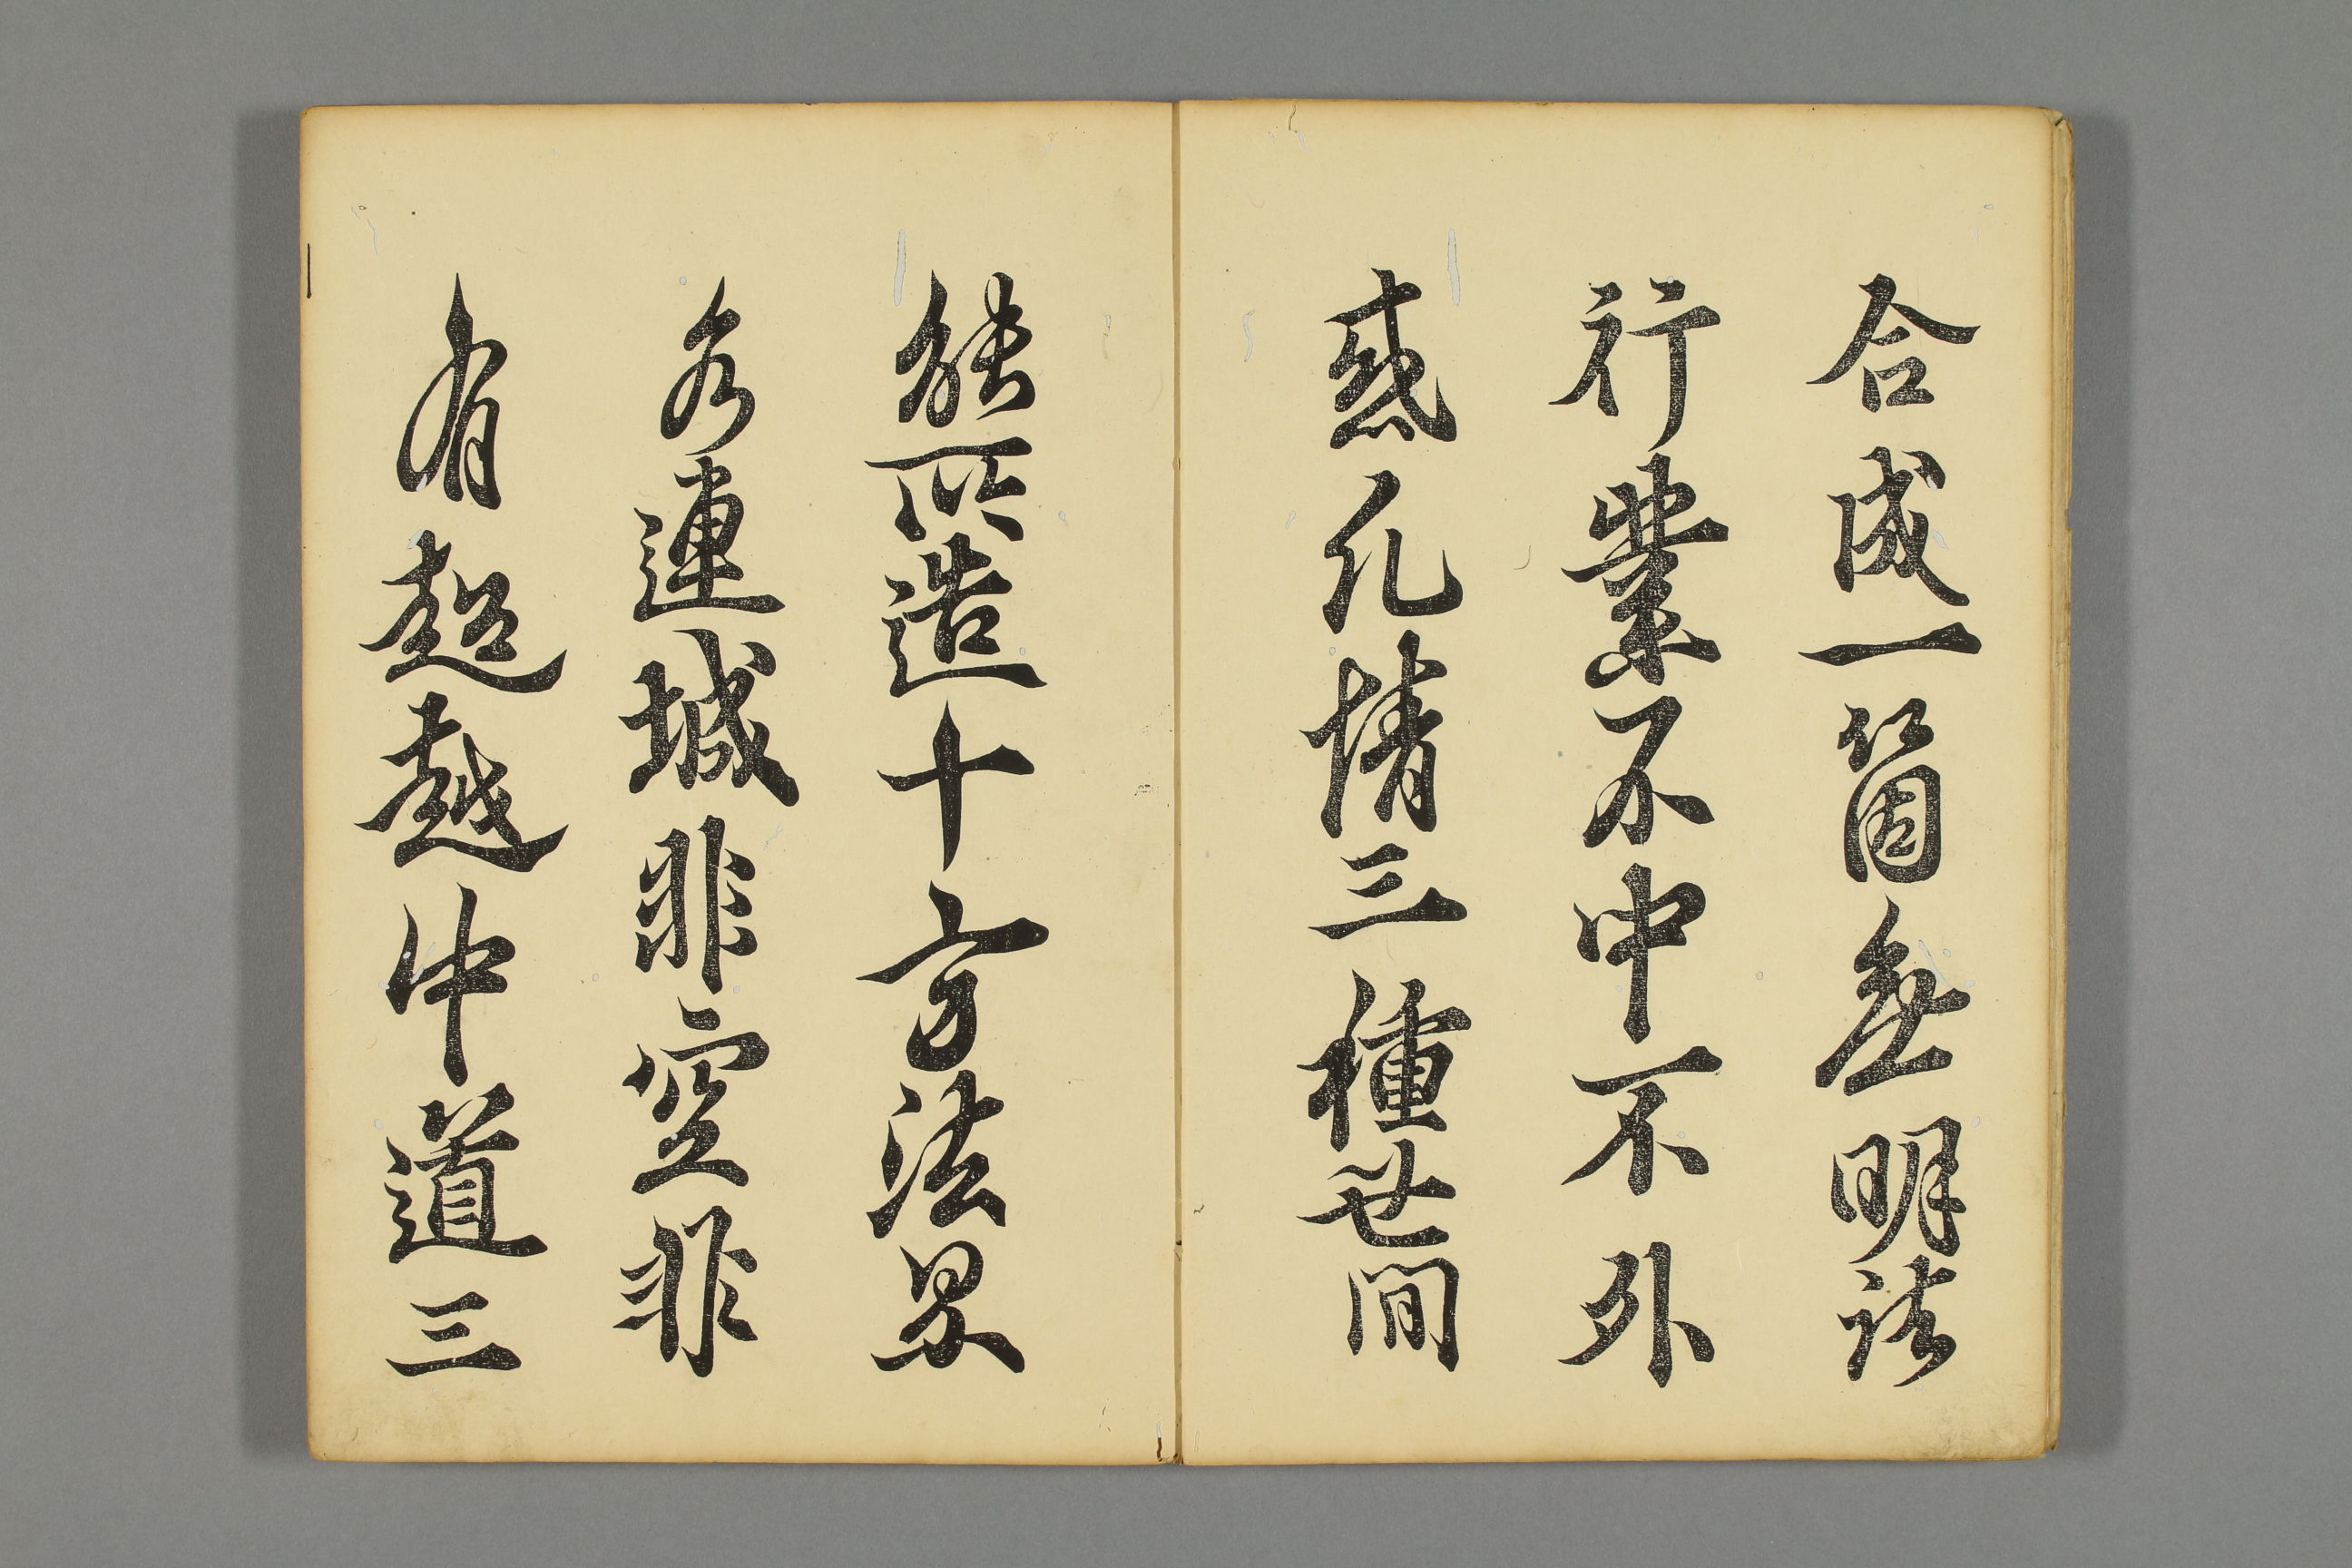 合成一箇無明諸
行業不中不外
惑凡情三種世間
能所造十方法界
水連城非空非
有超越中道三